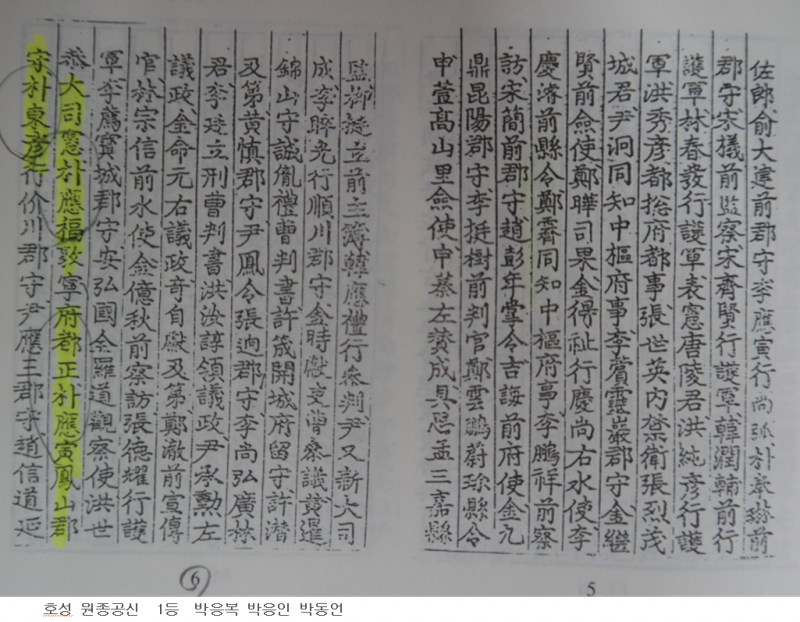 佐郎俞大建前郡守李應寅行尚弧朴奉琳前
郡守宋櫶前監察宋齊賢行護軍韓潤輔前行
護軍林春發行護軍表憲唐陵君洪純彦行護
軍洪秀彦都摠府都事張世英内禁衛張烈茂
城君尹泂同知中樞府事李蓂靈巖郡守金繼
賢前僉使鄭曄司果金得祉行慶尚右水使李
慶濬前縣令鄭霽同知中樞府事李鵬祥前察
訪宋簡前郡守趙彭年掌令吉誨前府使金九
鼎昆陽郡守李挺樹前判官鄭雲鵬蔚珍縣令
申萱高山里僉使申綦左贊成具思孟三嘉縣
5
監柳挺立前主簿韓應禮行參判尹又新大司
成李睟光行順川郡守金時獻吏曹參議黃暹
錦山守誠胤禮曹判書許筬開城府留守許潛
及第黃愼郡守尹鳳令張逈郡守李尚弘廣林
君李廷立刑曹判書洪汝諄領議政尹承勳左
議政金命元右議政奇自獻及第鄭澈前宣傳
官林宗信前水使金億秋前察訪張德耀行護
軍李鷹賓城郡守安弘國全羅道觀察使洪世
恭大司憲朴應福敦寧府都正朴應寅鳳山郡
守朴東彦行价川郡守尹應三郡守趙信道延
6
호성 원종공신 1등 박응복 박응인 박동언